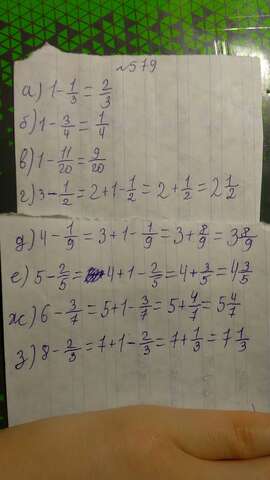 №579
а) 1 - 1/3 = 2/3
б) 1 - 3/4 = 1/4
в) 1 - 11/20 = 9/20
г) 3 - 1/2 = 2 + 1 - 1/2 = 2 + 1/2 = 2 1/2
д) 4 - 1/9 = 3 + 1 - 1/9 = 3 + 8/9 = 3 8/9
е) 5 - 2/5 = 4 + 1 - 2/5 = 4 + 3/5 = 4 3/5
ж) 6 - 3/7 = 5 + 1 - 3/7 = 5 + 4/7 = 5 4/7
з) 8 - 2/3 = 7 + 1 - 2/3 = 7 + 1/3 = 7 1/3